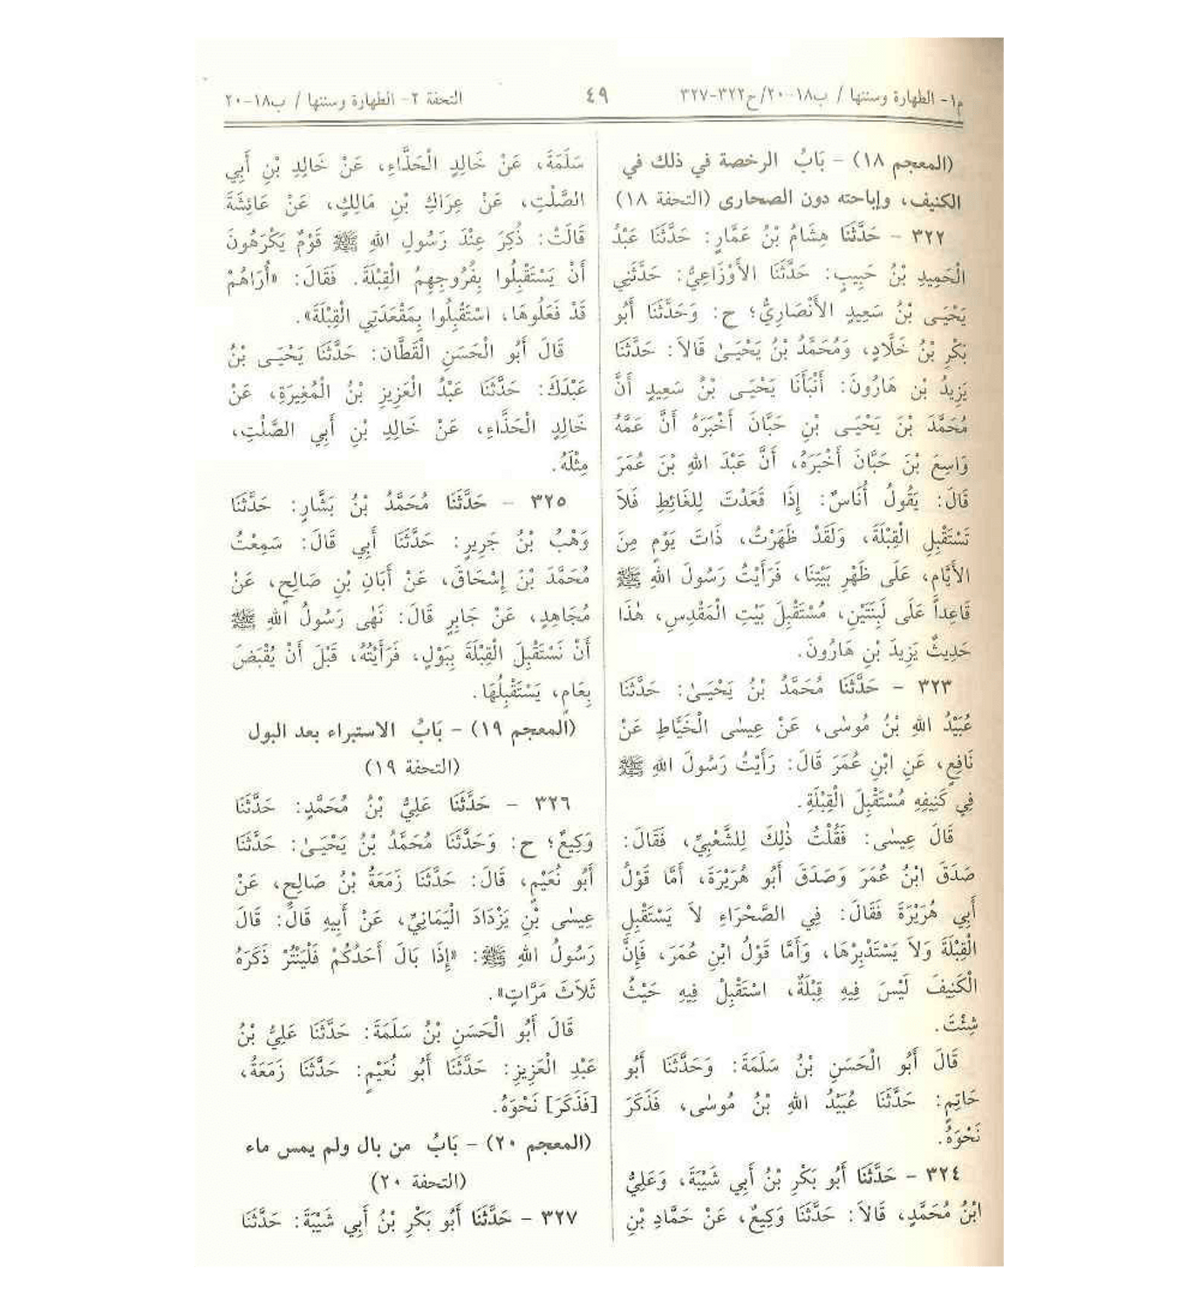 م١- الطهارة وسننها / ب١٨-٢٠/ح٣٢٢-٣٢٧
٤٩
التحفة ٢- الطهارة وسننها / ب١٨-٢٠
(المعجم ١٨) - بَابُ الرخصة في ذلك في
الكنيف، وإباحته دون الصحارى (التحفة ١٨)
٣٢٢ - حَدَّثَنَا هِشَامُ بْنُ عَمَّارٍ: حَدَّثَنَا عَبْدُ
الْحَمِيدِ بْنُ حَبِيبٍ: حَدَّثَنَا الأَوْزَاعِيُّ: حَدَّثَنِي
يَحْيَـى بْنُ سَعِيدٍ الأَنْصَارِيُّ؛ ح: وَحَدَّثَنَا أَبُو
بَكْرِ بْنُ خَلَّادٍ، وَمُحَمَّدُ بْنُ يَحْيَـىٰ قَالاَ: حَدَّثَنَا
يَزِيدُ بْن هَارُونَ: أَنْبَأَنَا يَحْيَـى بْنُ سَعِيدٍ أَنَّ
مُحَمَّدَ بْنَ يَحْيَـى بْنِ حَبَّانَ أَخْبَرَهُ أَنَّ عَمَّهُ
وَاسِعَ بْنَ حَبَّانَ أَخْبَرَهُ، أَنَّ عَبْدَ اللهِ بْنَ عُمَرَ
قَالَ: يَقُولُ أُنَاسٌ: إِذَا قَعَدْتَ لِلغَائِطِ فَلاَ
تَسْتَقْبِلِ الْقِبْلَةَ، وَلَقَدْ ظَهَرْتُ، ذَاتَ يَوْمٍ مِنَ
الأَيَّامِ، عَلَى ظَهْرِ بَيْتِنَا، فَرَأَيْتُ رَسُولَ اللهِ ﷺ
قَاعِداً عَلَى لَبِنَتَيْنِ، مُسْتَقْبِلَ بَيْتِ الْمَقْدِسِ، هٰذَا
حَدِيثُ يَزِيدَ بْنِ هَارُونَ.
٣٢٣ - حَدَّثَنَا مُحَمَّدُ بْنُ يَحْيَـىٰ: حَدَّثَنَا
عُبَيْدُ اللهِ بْنُ مُوسَى، عَنْ عِيسَى الْخَيَّاطِ عَنْ
نَافِعٍ، عَنِ ابْنِ عُمَرَ قَالَ: رَأَيْتُ رَسُولَ اللهِ ﷺ
فِي كَنِيفِهِ مُسْتَقْبِلَ الْقِبْلَةِ.
قَالَ عِيسَى: فَقُلْتُ ذٰلِكَ لِلشَّعْبِيِّ، فَقَالَ:
صَدَقَ ابْنُ عُمَرَ وَصَدَقَ أَبُو هُرَيْرَةَ، أَمَّا قَوْلُ
أَبِي هُرَيْرَةَ فَقَالَ: فِي الصَّحْرَاءِ لاَ يَسْتَقْبِلِ
الْقِبْلَةَ وَلاَ يَسْتَدْبِرْهَا، وَأَمَّا قَوْلُ ابْنِ عُمَرَ، فَإِنَّ
الْكَنِيفَ لَيْسَ فِيهِ قِبْلَةٌ، اسْتَقْبِلْ فِيهِ حَيْثُ
شِئْتَ.
قَالَ أَبُو الْحَسَنِ بْنُ سَلَمَةَ: وَحَدَّثَنَا أَبُو
حَاتِمٍ: حَدَّثَنَا عُبَيْدُ اللهِ بْنُ مُوسَى، فَذَكَرَ
نَحْوَهُ.
٣٢٤ - حَدَّثَنَا أَبُو بَكْرِ بْنُ أَبِي شَيْبَةَ، وَعَلِيُّ
ابْنُ مُحَمَّدٍ، قَالاَ: حَدَّثَنَا وَكِيعٌ، عَنْ حَمَّادِ بْنِ
سَلَمَةَ، عَنْ خَالِدٍ الْحَذَّاءِ، عَنْ خَالِدِ بْنِ أَبِي
الصَّلْتِ، عَنْ عِرَاكِ بْنِ مَالِكٍ، عَنْ عَائِشَةَ
قَالَتْ: ذُكِرَ عِنْدَ رَسُولِ اللهِ ﷺ قَوْمٌ يَكْرَهُونَ
أَنْ يَسْتَقْبِلُوا بِفُرُوجِهِمُ الْقِبْلَةَ. فَقَالَ: «أُرَاهُمْ
قَدْ فَعَلُوهَا، اسْتَقْبِلُوا بِمَقْعَدَتِي الْقِبْلَةَ».
قَالَ أَبُو الْحَسَنِ الْقَطَّان: حَدَّثَنَا يَحْيَـى بْنُ
عَبْدَكَ: حَدَّثَنَا عَبْدُ الْعَزِيزِ بْنُ الْمُغِيرَةِ، عَنْ
خَالِدٍ الْحَذَّاءِ، عَنْ خَالِدِ بْنِ أَبِي الصَّلْتِ،
مِثْلَهُ.
٣٢٥ - حَدَّثَنَا مُحَمَّدُ بْنُ بَشَّارٍ: حَدَّثَنَا
وَهْبُ بْنُ جَرِيرٍ: حَدَّثَنَا أَبِي قَالَ: سَمِعْتُ
مُحَمَّدَ بْنَ إِسْحَاقَ، عَنْ أَبَانِ بْنِ صَالِحٍ، عَنْ
مُجَاهِدٍ، عَنْ جَابِرٍ قَالَ: نَهَى رَسُولُ اللهِ ﷺ
أَنْ نَسْتَقْبِلَ الْقِبْلَةَ بِبَوْلٍ، فَرَأَيْتُهُ، قَبْلَ أَنْ يُقْبَضَ
بِعَامٍ، يَسْتَقْبِلُهَا.
(المعجم ١٩) - بَابُ الاستبراء بعد البول
(التحفة ١٩)
٣٢٦ - حَدَّثَنَا عَلِيُّ بْنُ مُحَمَّدٍ: حَدَّثَنَا
وَكِيعٌ؛ ح: وَحَدَّثَنَا مُحَمَّدُ بْنُ يَحْيَـىٰ: حَدَّثَنَا
أَبُو نُعَيْمٍ، قَالَ: حَدَّثَنَا زَمْعَةُ بْنُ صَالِحٍ، عَنْ
عِيسَى بْنِ يَزْدَادَ الْيَمَانِيِّ، عَنْ أَبِيهِ قَالَ: قَالَ
رَسُولُ اللهِ ﷺ: «إِذَا بَالَ أَحَدُكُمْ فَلْيَنْتُرْ ذَكَرَهُ
ثَلاَثَ مَرَّاتٍ».
قَالَ أَبُو الْحَسَنِ بْنُ سَلَمَةَ: حَدَّثَنَا عَلِيُّ بْنُ
عَبْدِ الْعَزِيزِ: حَدَّثَنَا أَبُو نُعَيْمٍ: حَدَّثَنَا زَمْعَةُ،
[فَذَكَرَ] نَحْوَهُ.
(المعجم ٢٠) - بَابُ من بال ولم يمس ماء
(التحفة ٢٠)
٣٢٧ - حَدَّثَنَا أَبُو بَكْرِ بْنُ أَبِي شَيْبَةَ: حَدَّثَنَا